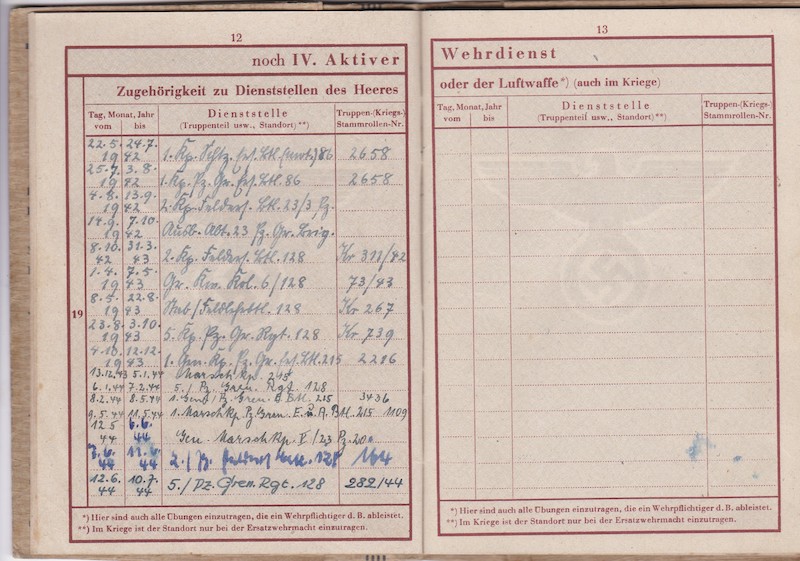 12
noch IV. Aktiver
Zugehörigkeit zu Dienststellen des Heeres
Tag, Monat, Jahr
vom bis
Dienststelle
(Truppenteil usw., Standort)**)
Truppen-(Kriegs-)
Stammrollen-Nr.
19
22.5. 24.7.
1942 1. Kp. Schtz. Ers. Btl. (mot.) 86 2658
25.7. 3.8.
1942 1. Kp. Pz. Gr. Ers. Btl. 86 2658
4.8. 13.9.
1942 2. Kp. Felders. Btl. 23/3 Pz.
14.9. 7.10.
1942 Ausb. Abt. 23 Pz. Gr. Brig.
8.10. 31.3.
42 43 2. Kp. Felders. Btl. 128 Kr 311/42
1.4. 7.5.
1943 Gr. Kw. Kol. 6/128 73/43
8.5. 22.8.
1943 Stab/ 128 Kr 267
23.8. 3.10.
1943 5. Kp. Pz. Gr. Rgt. 128 Kr 739
4.10. 12.12.
1943 1. Gen. Kp. Pz. Gr. Ers. Btl. 215 2216
13.12.43 5.1.44 Marschkp. 215
6.1.44 7.2.44 5./Pz. Gren. Rgt. 128
8.2.44 8.5.44 Pz. Gren. Btl. 215 3436
9.5.44 11.5.44 1. Marschkp. Pz. Gren. E. u. A. Btl. 215 1109
12.5 6.6.
44 44 Gen. Marschkp. 23 Pz.
11.6.
44 44 2./Pz. 128 164
12.6. 10.7.
44 44 5./Pz. Gren. Rgt. 128 282/44
*) Hier sind auch alle Übungen einzutragen, die ein Wehrpflichtiger d. B. ableistet.
**) Im Kriege ist der Standort nur bei der Ersatzwehrmacht einzutragen.
13
Wehrdienst
oder der Luftwaffe*) (auch im Kriege)
Tag, Monat, Jahr
vom bis
Dienststelle
(Truppenteil usw., Standort)**)
Truppen-(Kriegs-)
Stammrollen-Nr.
*) Hier sind auch alle Übungen einzutragen, die ein Wehrpflichtiger d. B. ableistet.
**) Im Kriege ist der Standort nur bei der Ersatzwehrmacht einzutragen.